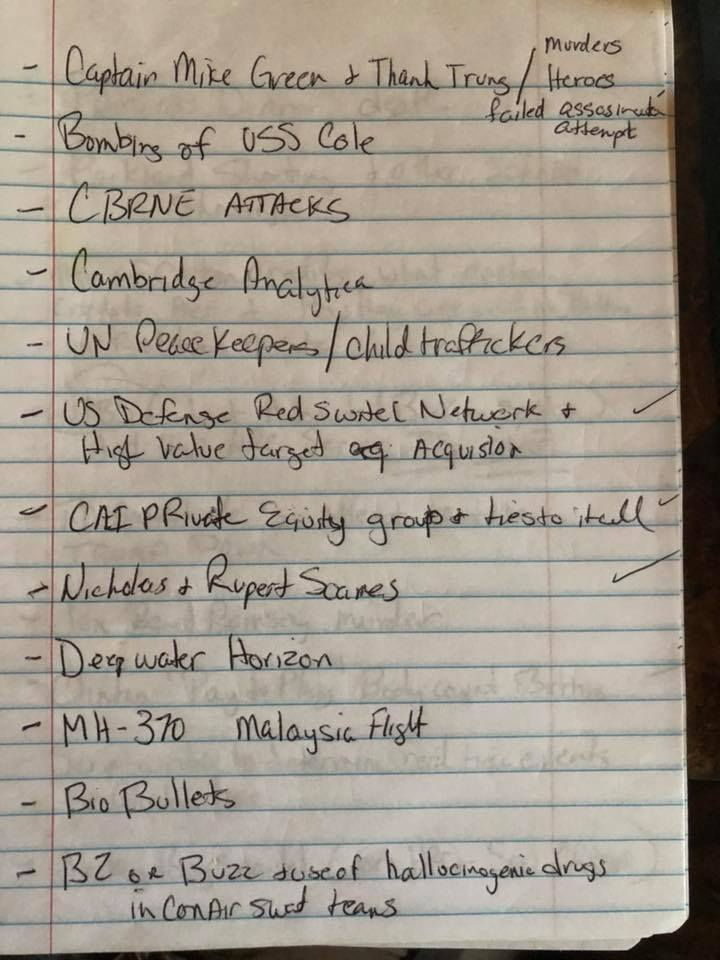 murders
- Captain Mike Green & Thanh Trung / Heroes
failed assasination
attempt
- Bombing of USS Cole
- CBRNE ATTACKS
- Cambridge Analytica
- UN Peace Keepers / child traffickers
- US Defense Red Switch Network &
High Value target Acquision
- CAI PRivate Equity group & ties to it all
- Nicholas & Rupert Soames
- Deep water Horizon
- MH-370 Malaysia Flight
- Bio Bullets
- BZ or Buzz & use of hallucinogenic drugs
in ConAir swat teams